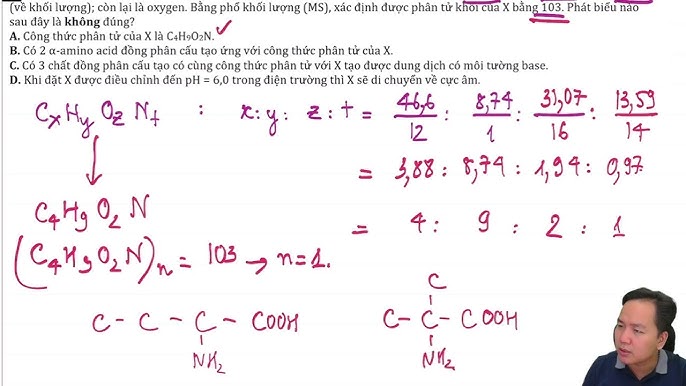 (về khối lượng); còn lại là oxygen. Bằng phổ khối lượng (MS), xác định được phân tử khối của X bằng 103. Phát biểu nào
sau đây là không đúng?
A. Công thức phân tử của X là C₄H₉O₂N.
B. Có 2 α-amino acid đồng phân cấu tạo ứng với công thức phân tử của X.
C. Có 3 chất đồng phân cấu tạo có cùng công thức phân tử với X tạo được dung dịch có môi tường base.
D. Khi đặt X được điều chỉnh đến pH = 6,0 trong điện trường thì X sẽ di chuyển về cực âm.
CxHyOzNt : x : y : z : t = 46,6/12 : 8,74/1 : 31,07/16 : 13,59/14
= 3,88 : 8,74 : 1,94 : 0,97
C₄H₉O₂N = 4 : 9 : 2 : 1
(C₄H₉O₂N)n = 103 → n = 1.
C
C - C - C - COOH C - C - COOH
NH₂ NH₂